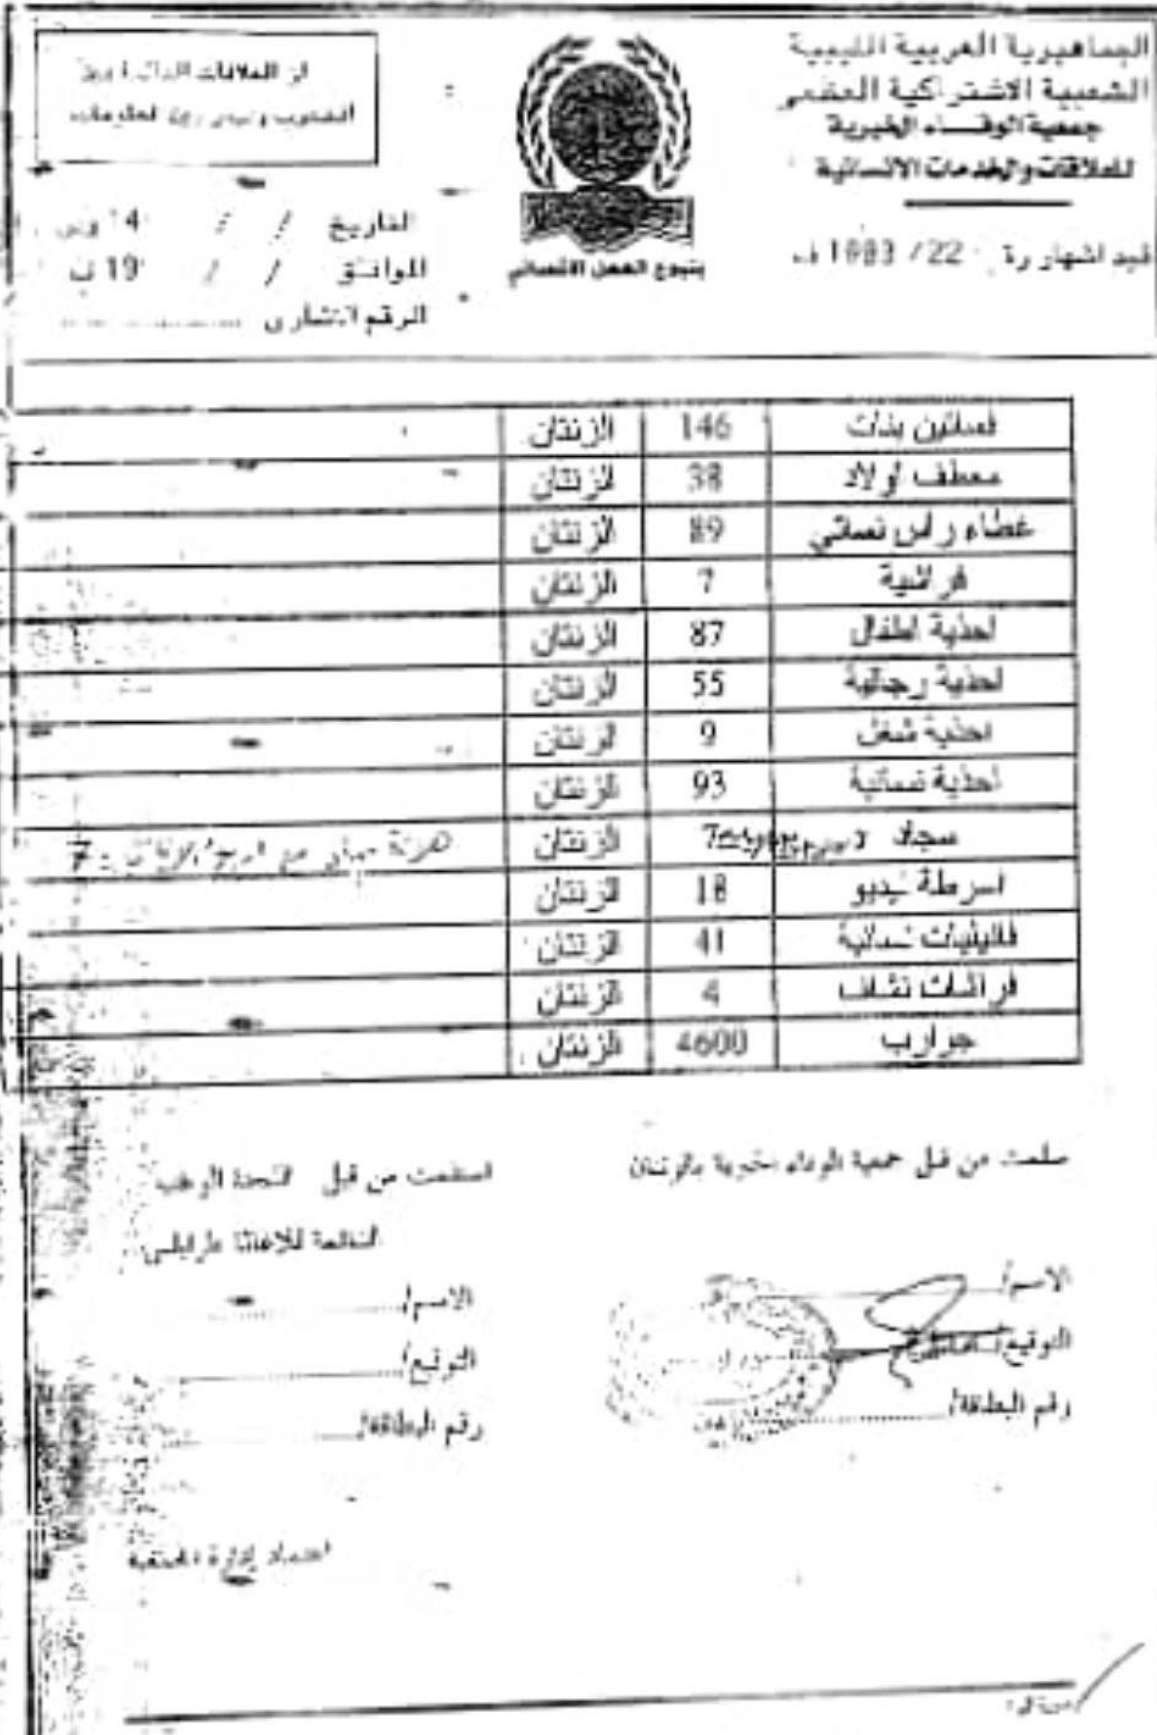 الجماهيرية العربية الليبية
الشعبية الاشتراكية العظمى
جمعية الوفاء الخيرية
للعلاقات والخدمات الانسانية
قيد اشهار رقم 22 / 1993 ف
ينبوع العمل الانساني
ان العلاقات الدائمة بين
الشعوب وليس بين الحكومات
التاريخ / / 14 و.ر
الموافق / / 19 ف
الرقم الاشاري
فساتين بنات 146 الزنتان
معطف اولاد 38 الزنتان
غطاء رأس نسائي 89 الزنتان
فراشية 7 الزنتان
احذية اطفال 87 الزنتان
احذية رجالية 55 الزنتان
احذية شغل 9 الزنتان
احذية نسائية 93 الزنتان
سجاد 7 الزنتان
اشرطة فيديو 18 الزنتان
فانيليات نسائية 41 الزنتان
فراشات نشاف 4 الزنتان
جوارب 4600 الزنتان
سلمت من قبل جمعية الوفاء الخيرية بالزنتان
الاسم/
التوقيع/
رقم البطاقة/
استلمت من قبل اللجنة الوطنية
الدائمة للاغاثة طرابلس
الاسم/
التوقيع/
رقم البطاقة/
اعتماد إدارة الجمعية
صورة الى: